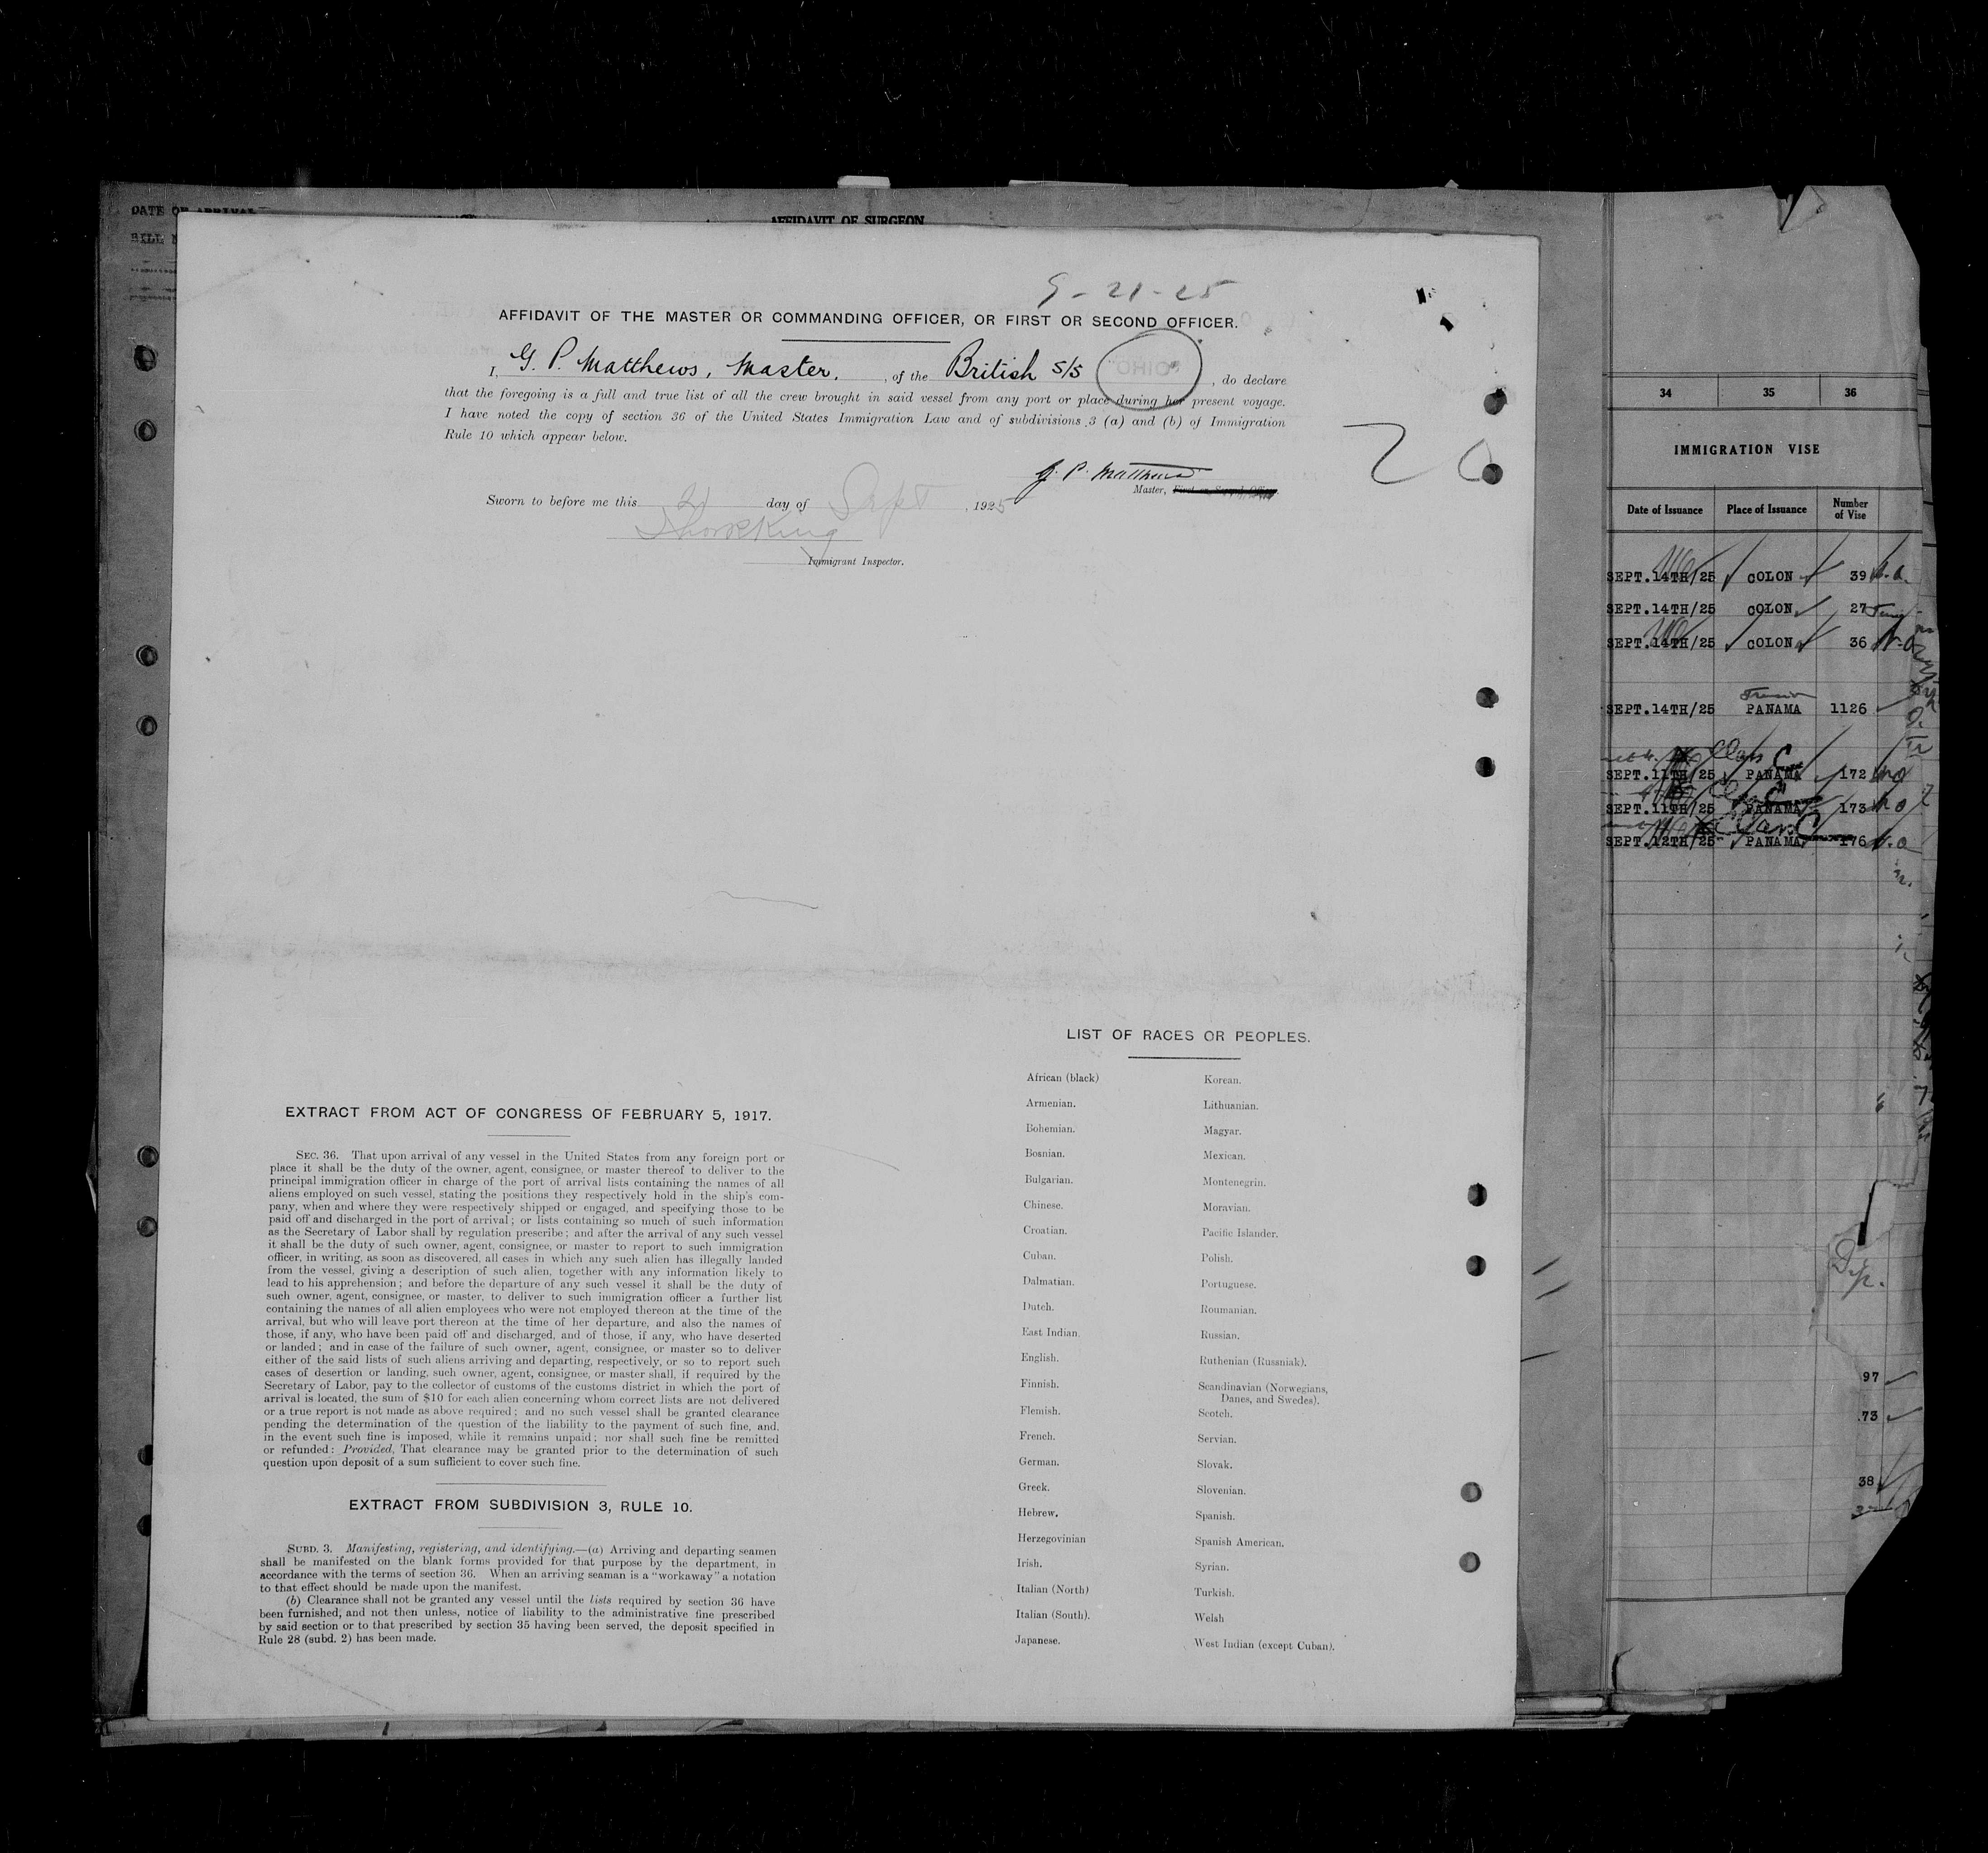 DATE OF ARRIVAL
AFFIDAVIT OF SURGEON
BILL
9-21-25
AFFIDAVIT OF THE MASTER OR COMMANDING OFFICER, OR FIRST OR SECOND OFFICER.
I, G. P. Matthews, Master, of the British S/S "OHIO", do declare
that the foregoing is a full and true list of all the crew brought in said vessel from any port or place during her present voyage.
I have noted the copy of section 36 of the United States Immigration Law and of subdivisions 3 (a) and (b) of Immigration
Rule 10 which appear below.
20
G. P. Matthews
Master, First or Second Officer.
Sworn to before me this 21 day of Sept, 1925
Immigrant Inspector.
EXTRACT FROM ACT OF CONGRESS OF FEBRUARY 5, 1917.
SEC. 36. That upon arrival of any vessel in the United States from any foreign port or
place it shall be the duty of the owner, agent, consignee, or master thereof to deliver to the
principal immigration officer in charge of the port of arrival lists containing the names of all
aliens employed on such vessel, stating the positions they respectively hold in the ship's com-
pany, when and where they were respectively shipped or engaged, and specifying those to be
paid off and discharged in the port of arrival; or lists containing so much of such information
as the Secretary of Labor shall by regulation prescribe; and after the arrival of any such vessel
it shall be the duty of such owner, agent, consignee, or master to report to such immigration
officer, in writing, as soon as discovered, all cases in which any such alien has illegally landed
from the vessel, giving a description of such alien, together with any information likely to
lead to his apprehension; and before the departure of any such vessel it shall be the duty of
such owner, agent, consignee, or master, to deliver to such immigration officer a further list
containing the names of all alien employees who were not employed thereon at the time of the
arrival, but who will leave port thereon at the time of her departure, and also the names of
those, if any, who have been paid off and discharged, and of those, if any, who have deserted
or landed; and in case of the failure of such owner, agent, consignee, or master so to deliver
either of the said lists of such aliens arriving and departing, respectively, or so to report such
cases of desertion or landing, such owner, agent, consignee, or master shall, if required by the
Secretary of Labor, pay to the collector of customs of the customs district in which the port of
arrival is located, the sum of $10 for each alien concerning whom correct lists are not delivered
or a true report is not made as above required; and no such vessel shall be granted clearance
pending the determination of the question of the liability to the payment of such fine, and,
in the event such fine is imposed, while it remains unpaid; nor shall such fine be remitted
or refunded: Provided, That clearance may be granted prior to the determination of such
question upon deposit of a sum sufficient to cover such fine.
EXTRACT FROM SUBDIVISION 3, RULE 10.
SUBD. 3. Manifesting, registering, and identifying.—(a) Arriving and departing seamen
shall be manifested on the blank forms provided for that purpose by the department, in
accordance with the terms of section 36. When an arriving seaman is a "workaway" a notation
to that effect should be made upon the manifest.
(b) Clearance shall not be granted any vessel until the lists required by section 36 have
been furnished, and not then unless, notice of liability to the administrative fine prescribed
by said section or to that prescribed by section 35 having been served, the deposit specified in
Rule 28 (subd. 2) has been made.
LIST OF RACES OR PEOPLES.
African (black)
Armenian.
Bohemian.
Bosnian.
Bulgarian.
Chinese.
Croatian.
Cuban.
Dalmatian.
Dutch.
East Indian.
English.
Finnish.
Flemish.
French.
German.
Greek.
Hebrew.
Herzegovinian
Irish.
Italian (North)
Italian (South).
Japanese.
Korean.
Lithuanian.
Magyar.
Mexican.
Montenegrin.
Moravian.
Pacific Islander.
Polish.
Portuguese.
Roumanian.
Russian.
Ruthenian (Russniak).
Scandinavian (Norwegians,
Danes, and Swedes).
Scotch.
Servian.
Slovak.
Slovenian.
Spanish.
Spanish American.
Syrian.
Turkish.
Welsh
West Indian (except Cuban).
34 35 36
IMMIGRATION VISE
Date of Issuance Place of Issuance Number of Vise
SEPT.14TH/25 COLON 39
SEPT.14TH/25 COLON 27
SEPT.14TH/25 COLON 36
SEPT.14TH/25 PANAMA 1126
Class C
SEPT.11TH/25 PANAMA 172
SEPT.11TH/25 PANAMA 173
Class C
SEPT.12TH/25 PANAMA 176
97
73
38